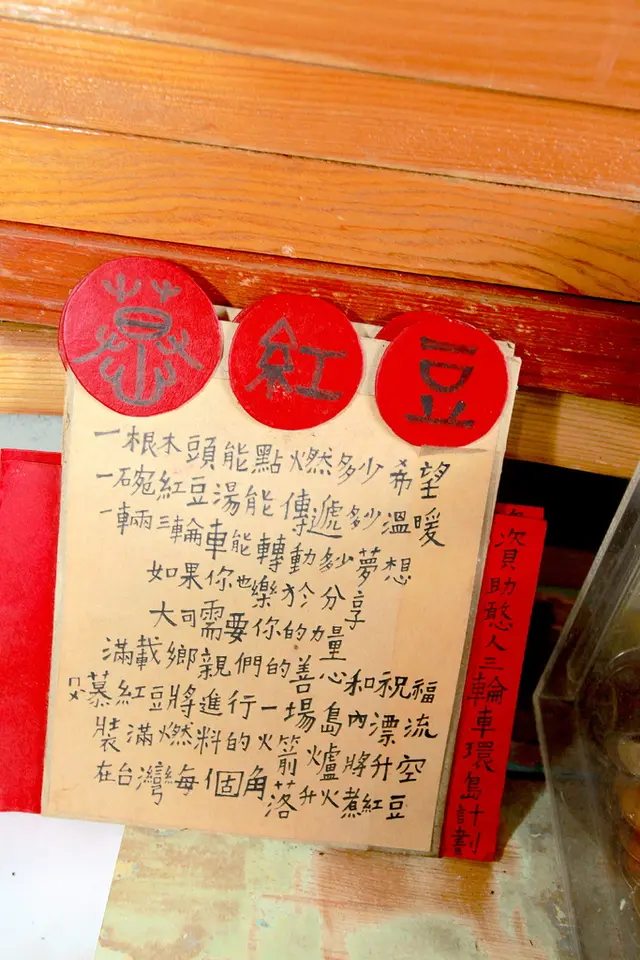 慕紅豆
一根木頭能點燃多少希望
一碗紅豆湯能傳遞多少溫暖
一輛三輪車能轉動多少夢想
如果你也樂於分享
大需要你的力量
滿載鄉親們的善心和祝福
慕紅豆將進行一場島內漂流
裝滿燃料的火箭爐將升空
在台灣每個角落升火煮紅豆
資助憨人三輪車環島計劃